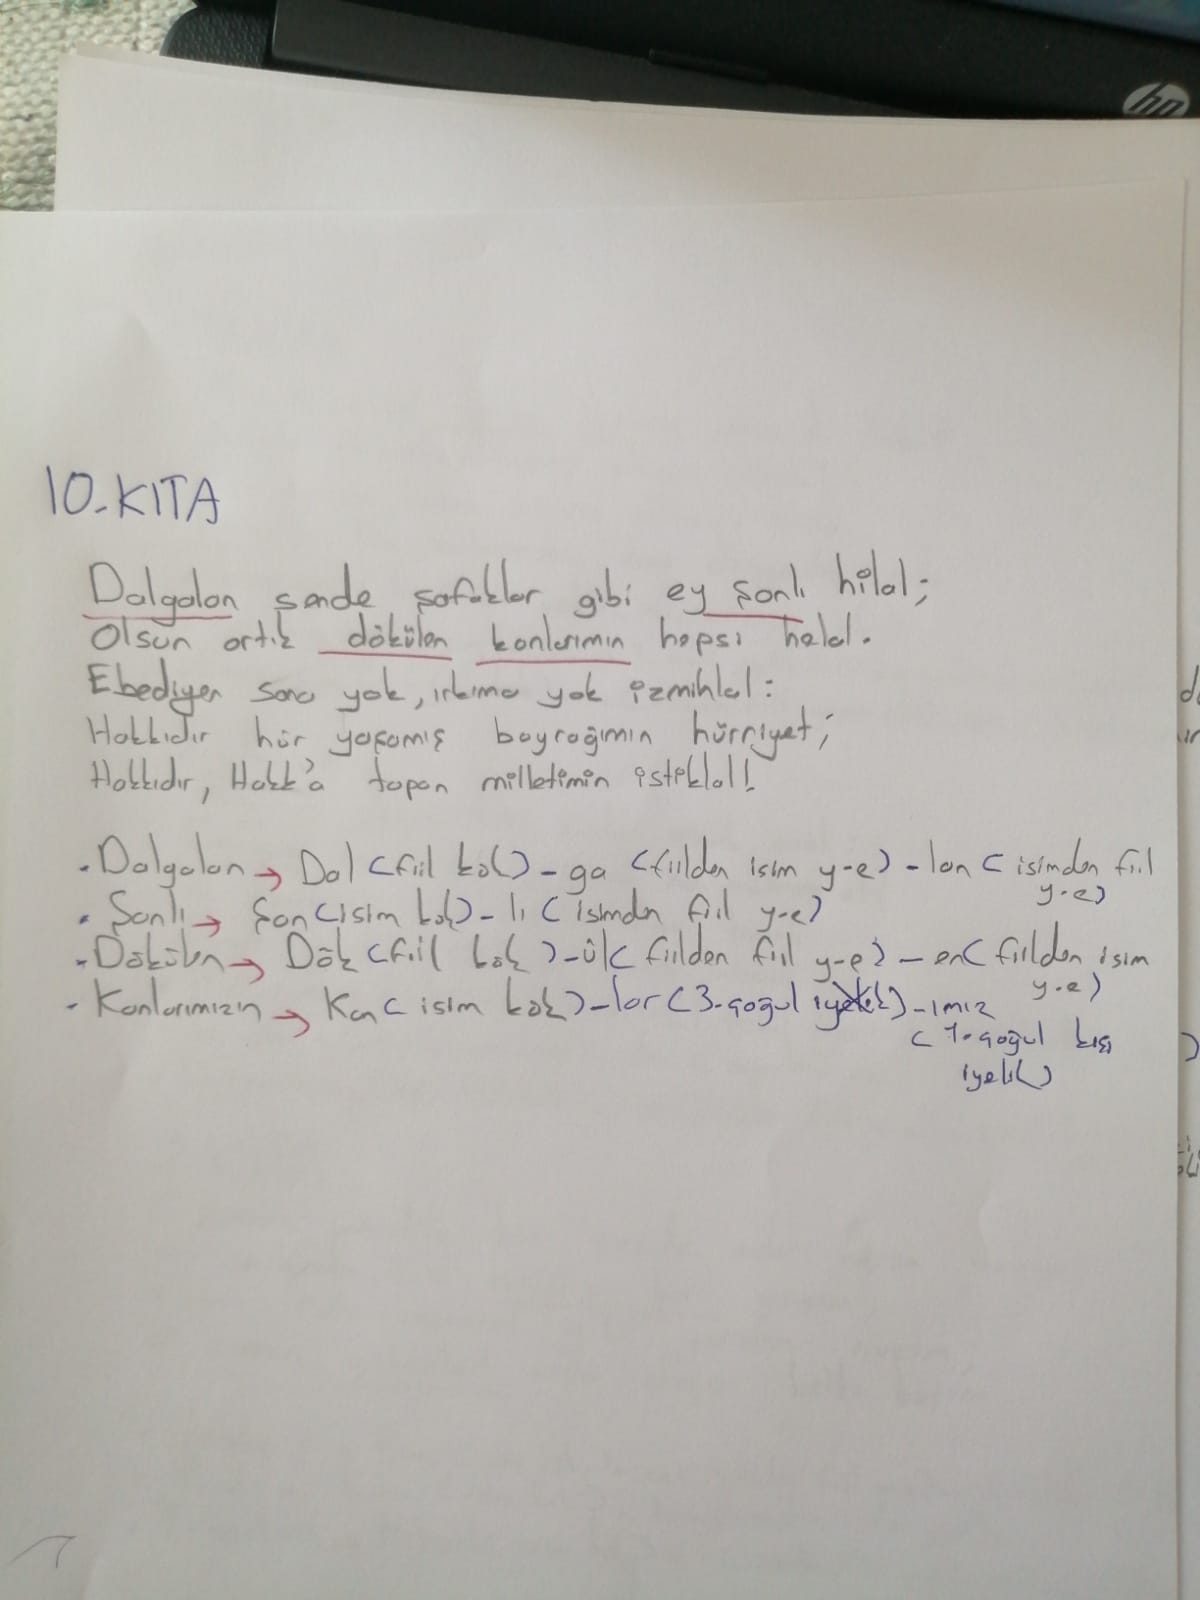 hp
10-KITA
Dalgalan sende şafaklar gibi ey şanlı hilal;
Olsun artık dökülen kanlarımın hepsi helal.
Ebediyen sana yok, ırkıma yok izmihlal:
Hakkıdır hür yaşamış bayrağımın hürriyet;
Hakkıdır, Hakk'a tapan milletimin istiklal!
- Dalgalan → Dal (fiil kök) - ga (fiilden isim y-e) - lan (isimden fiil
y-e)
- Şanlı → Şan (isim kök) - lı (isimden fiil y-e)
- Dökülen → Dök (fiil kök) - ül (fiilden fiil y-e) - en (fiilden isim
y-e)
- Kanlarımızın → Kan (isim kök) - lar (3-çoğul iyelik) - ımız
(1-çoğul kişi
iyelik)